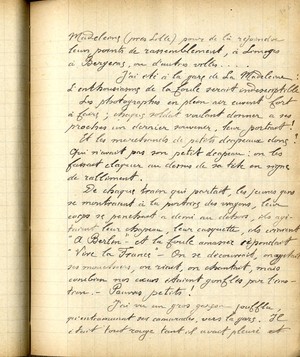 Madeleine (près Lille) pour de là rejoindre
leur points de rassemblement, à Limoges
à Bergerac, ou d'autres villes....
J'ai été à la gare de La Madeleine :
L'enthousiasme de la foule serait indescriptible
Les photographes en plein air eurent fort
à faire ; chaque soldat voulant donner à ses
proches un dernier souvenir, leur portrait !
Et les marchands de petits drapeaux donc !
Qui n'avait pas son petit drapeau : on les
faisait claquer au dessus de sa tête en signe
de ralliement.
De chaque train qui partait, les jeunes gens
se montraient à la portière des wagons, leur
corps se penchant à demi au dehors, ils
leur chapeau, leur casquette, ils criaient
"A Berlin" et la foule amassée répondait
"Vive la France" - On se découvrait,
ses mouchoirs, on riait, on chantait, mais
combien nos cœurs étaient gonflés par l'
- Pauvres petits !
J'ai vu un gros garçon joufflu
ses camarades, vers la gare. Il
était tout rouge tant il avait pleuré et